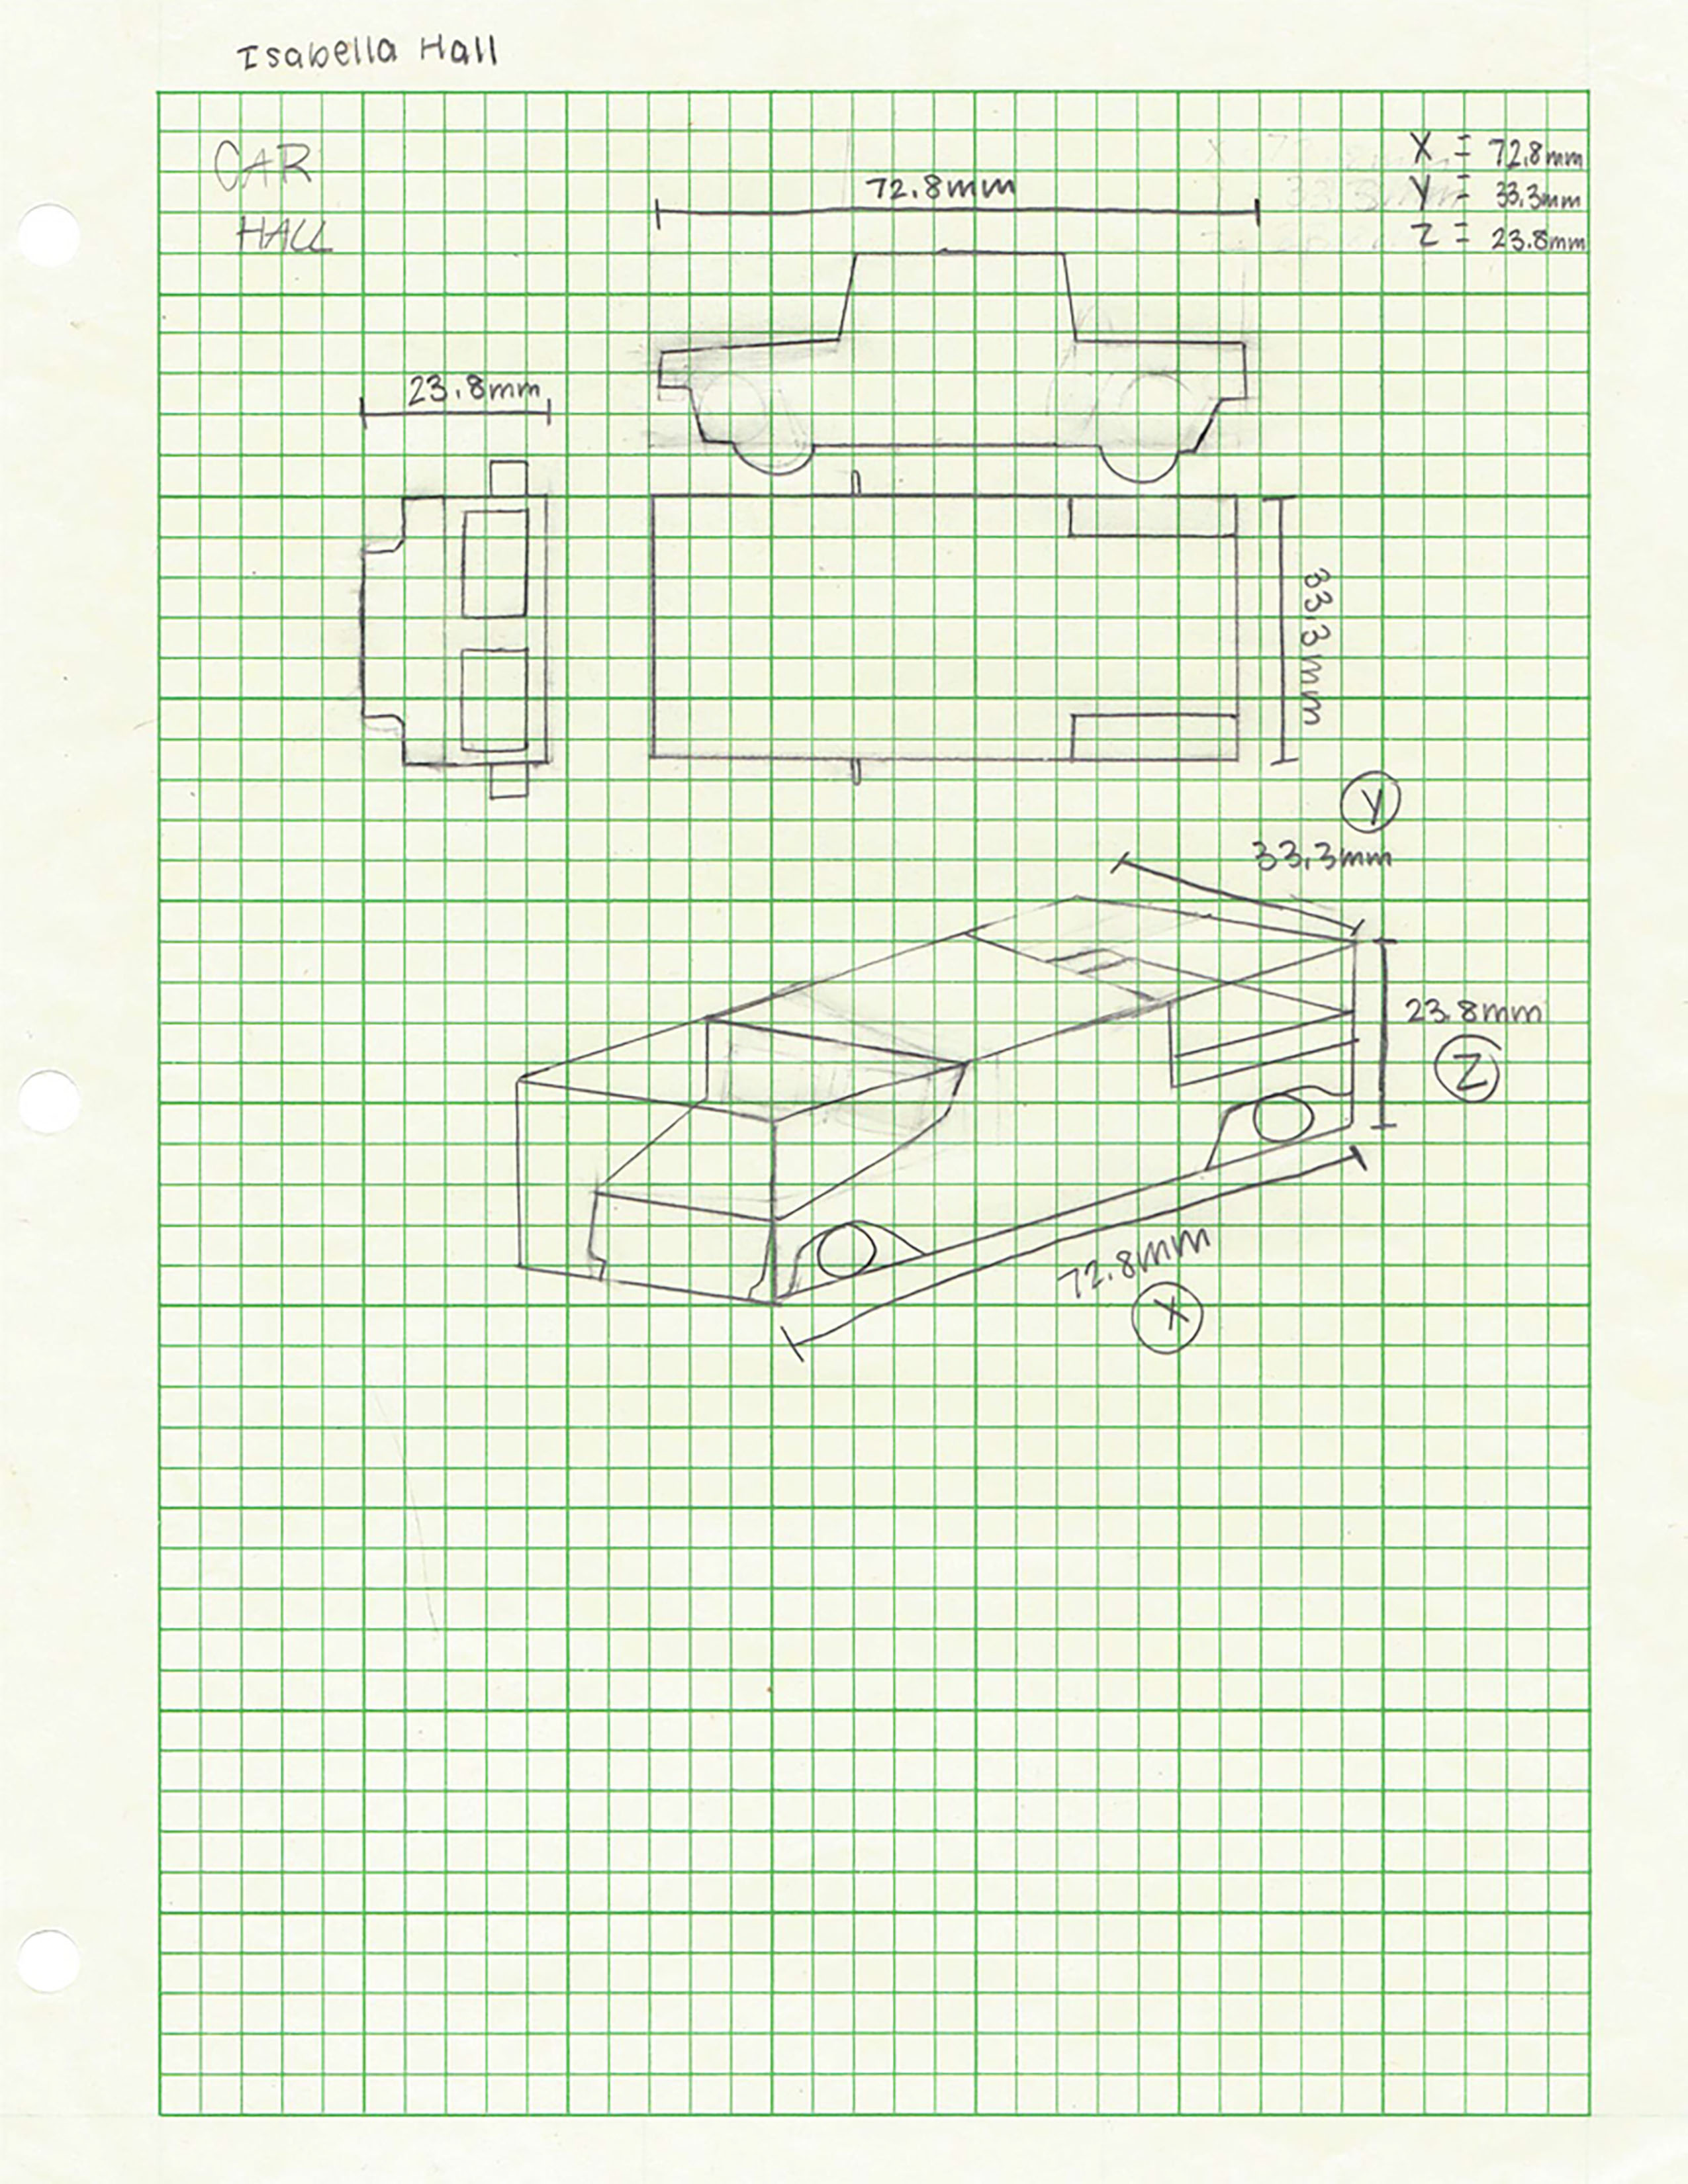 Isabella Hall
CAR
HALL
X = 72.8mm
Y = 33.3mm
Z = 23.8mm
72.8mm
23.8mm
33.3mm
Y
33.3mm
23.8mm
Z
72.8mm
X